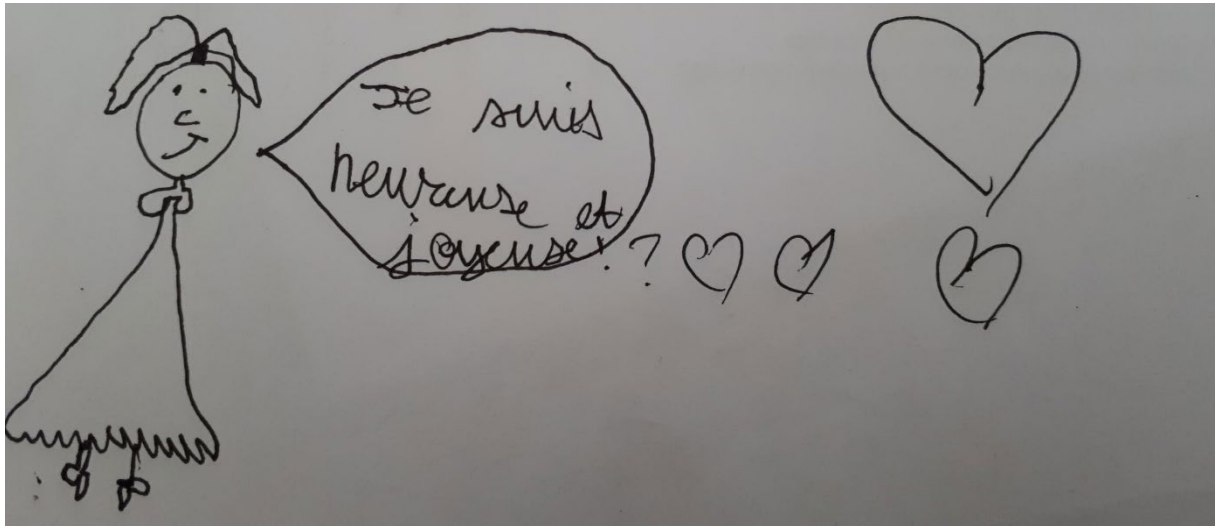 Je suis
heureuse et
joyeuse!?